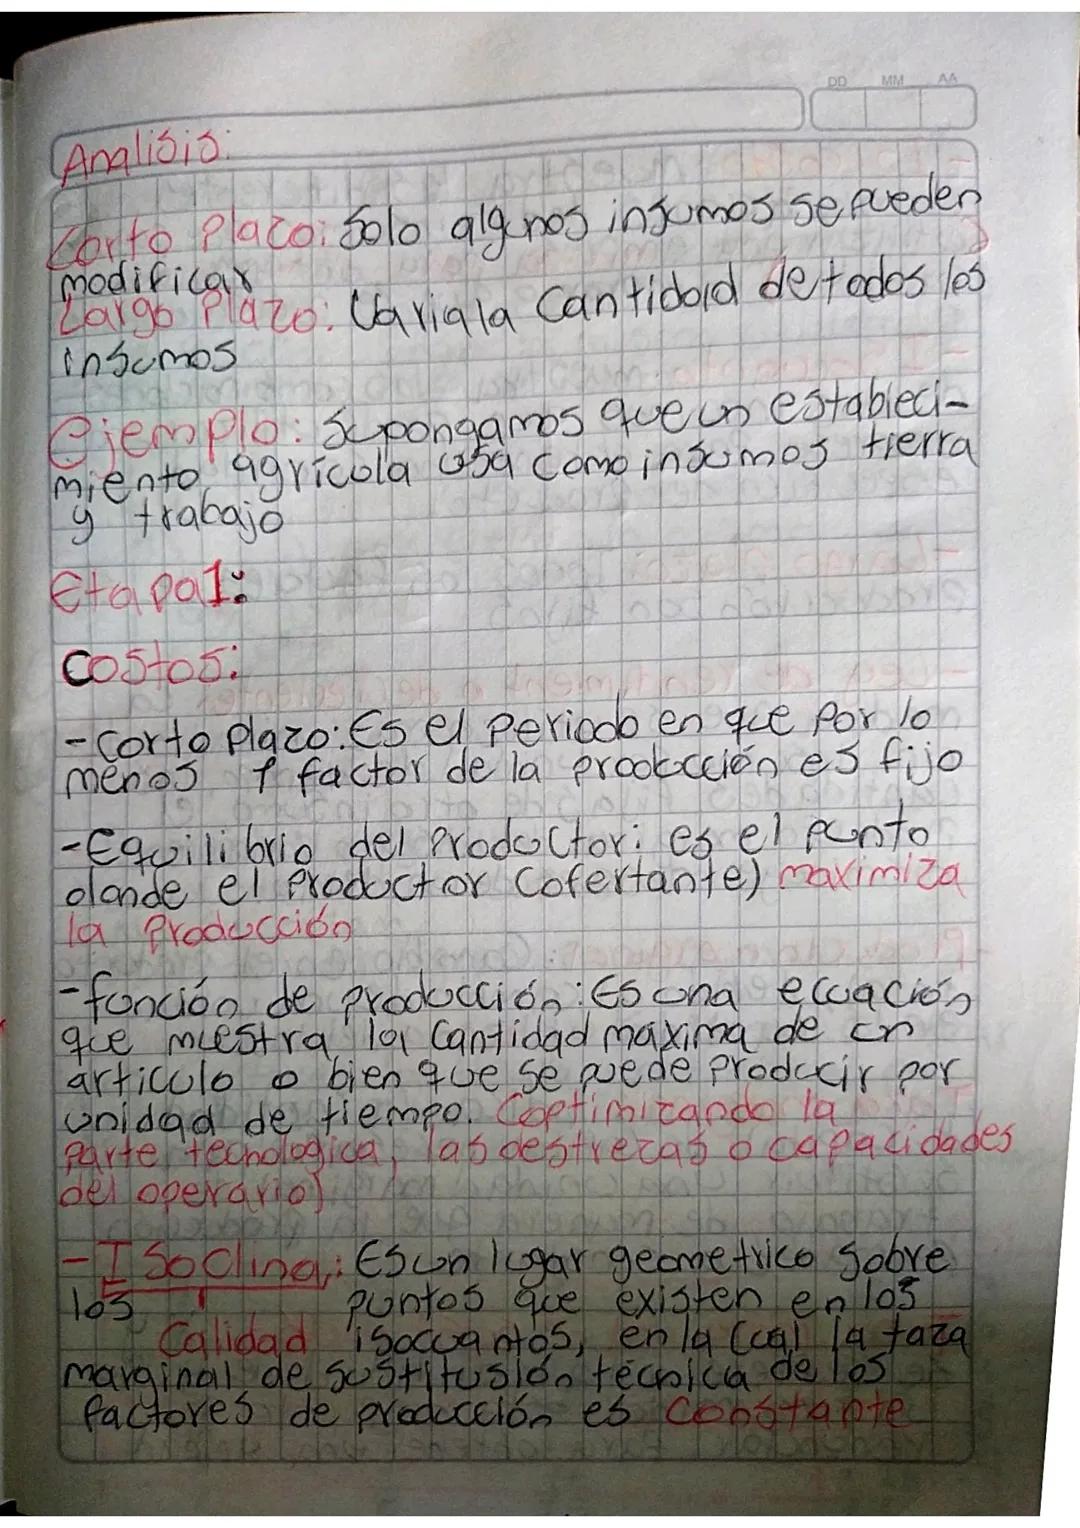 DD MM AA
Analisis:
Corto Plazo: Solo algunos insumos se pueden
modificar
Largo Plazo: Varia la Cantidad de todos los
insumos
Ejemplo: Supongamos que un estableci-
miento agrícola usa como insumos tierra
y trabajo
Etapa1:
Costos:
- corto plazo: Es el periodo en que por lo
menos 1 factor de la producción es fijo
- Equilibrio del Productor: es el punto
donde el Productor (ofertante) maximiza
la Producción
- función de producción: Es una ecuación
que muestra la Cantidad maxima de un
articulo o bien que se puede Producir por
unidad de tiempo. (optimizando la
parte tecnologica, las destrezas o capacidades
del operario)
- ISoClina: Es un lugar geometrico Sobre
los puntos que existen en los
Calidad isocuantos, en la (cual la taza
marginal de sustitusión técnica de los
factores de producción es Constante